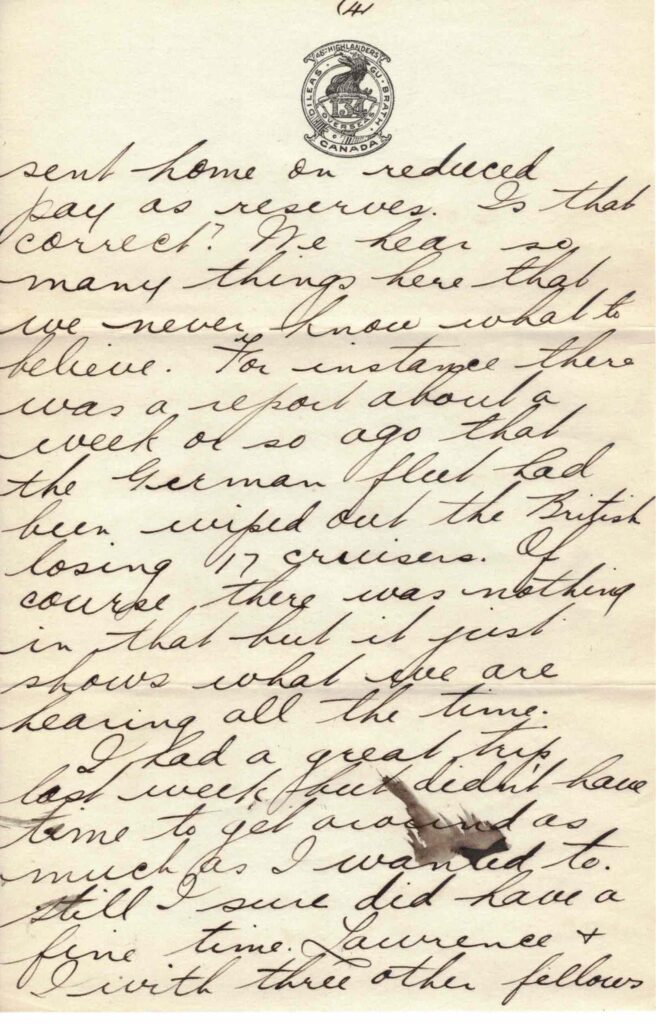 (4)
48TH HIGHLANDERS
DILEAS GU BRATH
134
OVERSEAS
CANADA
sent home on reduced
pay as reserves. Is that
correct? We hear so
many things here that
we never know what to
believe. For instance there
was a report about a
week or so ago that
the German fleet had
been wiped out the British
losing 17 cruisers. Of
course there was nothing
in that but it just
shows what we are
hearing all the time.
I had a great trip
last week but didn't have
time to get around as
much as I wanted to.
still I sure did have a
fine time. Lawrence &
I with three other fellows